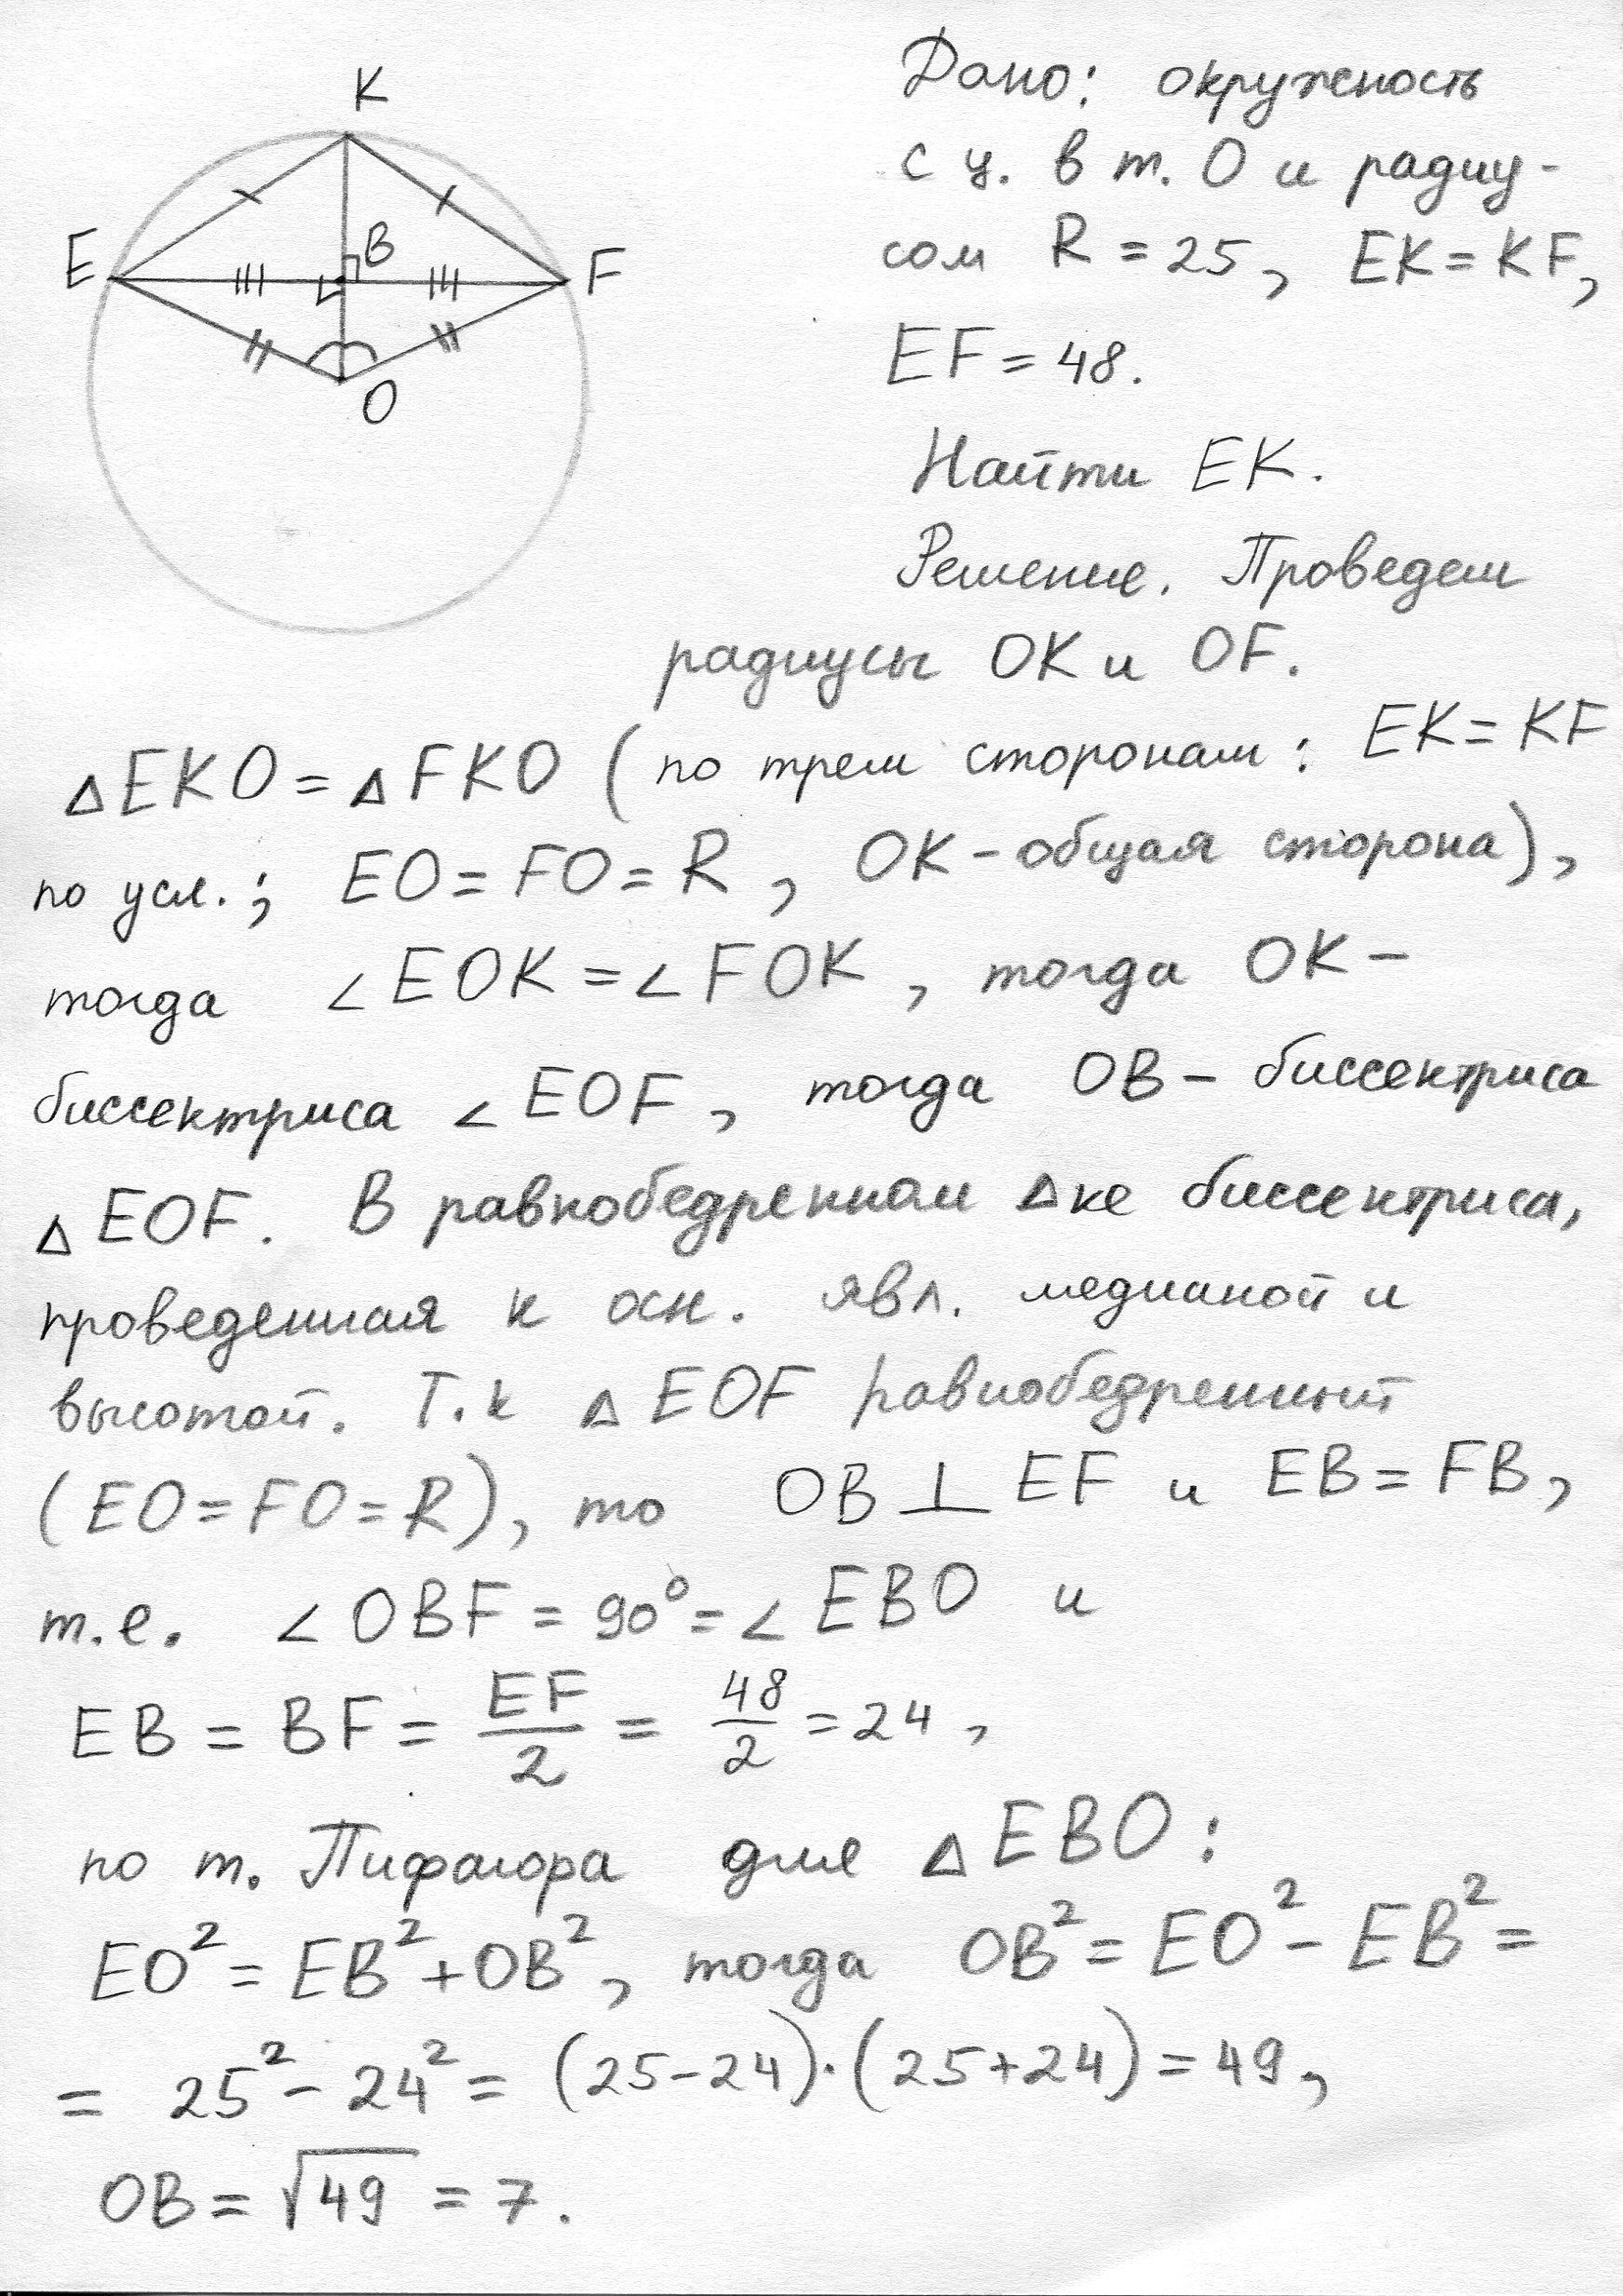 K
E
B
F
O
Дано: окружность
с ц. в т. О и радиу-
сом R = 25, EK = KF,
EF = 48.
Найти EK.
Решение. Проведем
радиусы OK и OF.
△EKO = △FKO (по трем сторонам: EK = KF
по усл.; EO = FO = R, OK - общая сторона),
тогда ∠EOK = ∠FOK, тогда OK -
биссектриса ∠EOF, тогда OB - биссектриса
△EOF. В равнобедренном △ке биссектриса,
проведенная к осн. явл. медианой и
высотой. Т.к △EOF равнобедренный
(EO = FO = R), то OB ⊥ EF и EB = FB,
т.е. ∠OBF = 90° = ∠EBO и
EB = BF = EF/2 = 48/2 = 24,
по т. Пифагора для △EBO:
EO² = EB² + OB², тогда OB² = EO² - EB² =
= 25² - 24² = (25-24)·(25+24) = 49,
OB = √49 = 7.